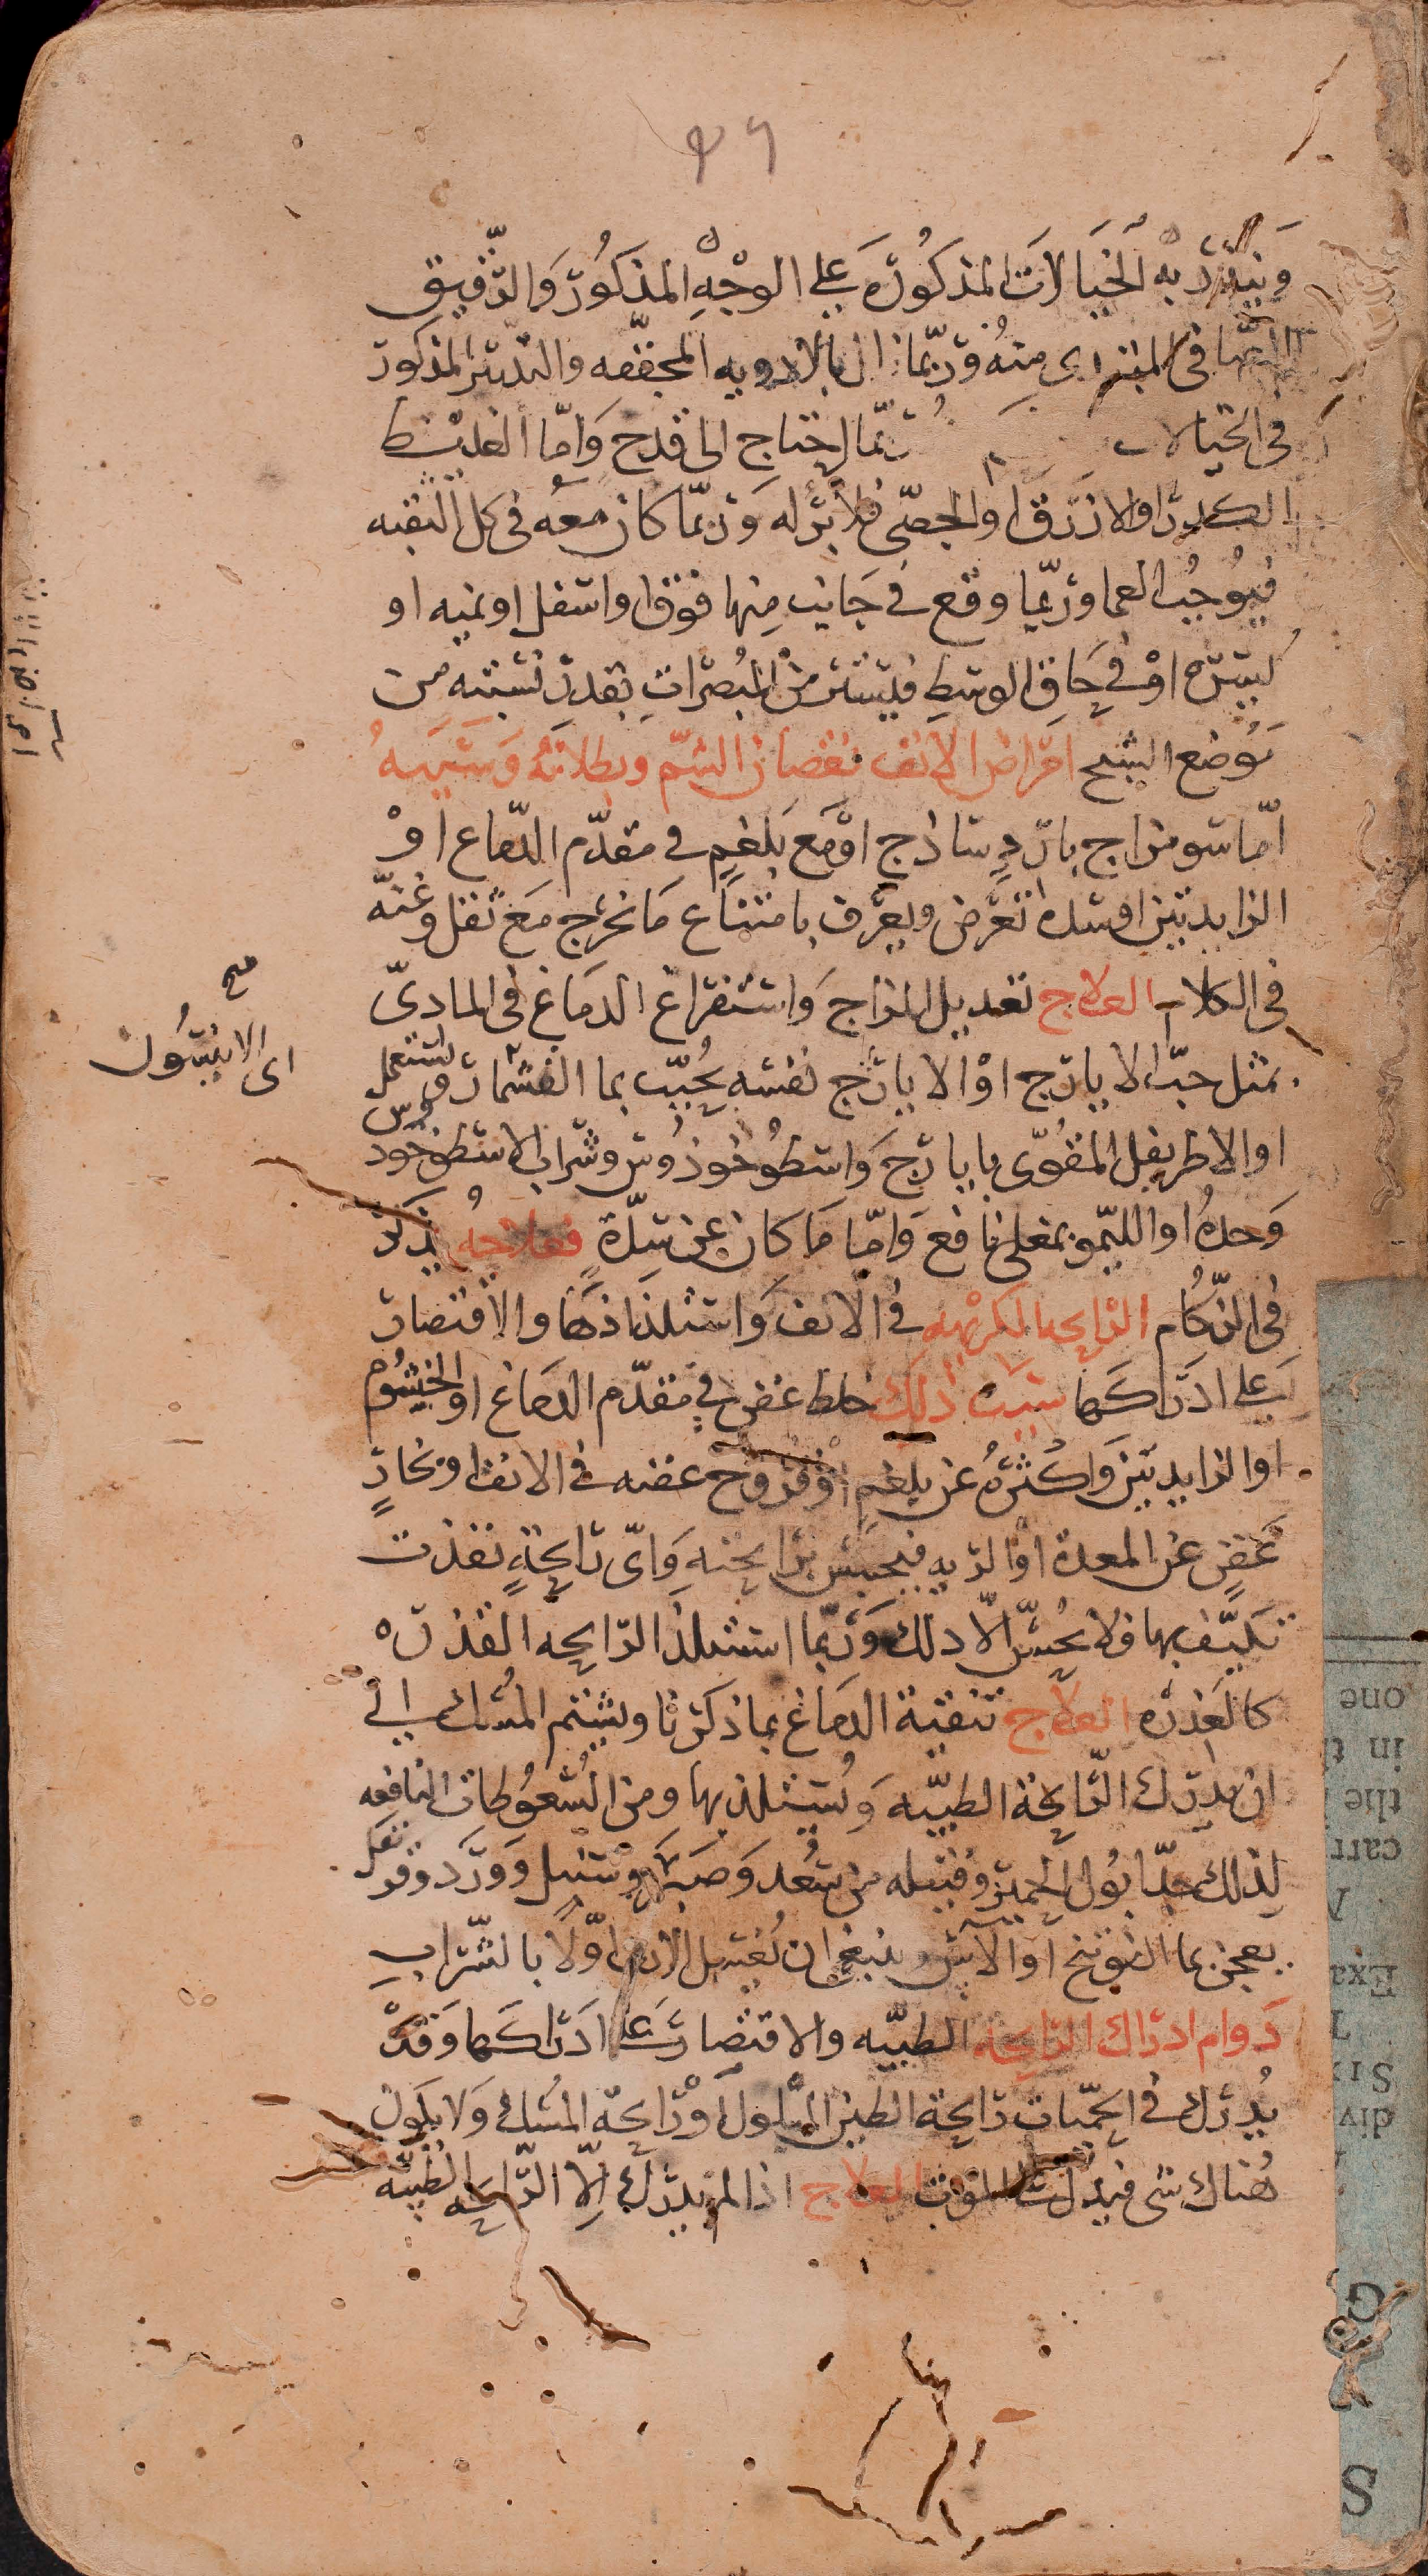 وينذر به الخيالات المذكورة على الوجه المذكور والرقيق
الصافى المبتدى منه وربما زال بالادويه المجففه والتدبير المذكور
فى الخيالات ربما احتاج الى قدح واما الغليظ
الكدر او الازرق او الجصى فلا برؤ له وربما كان معه فى كل الثقبه
فيوجب العما وربما وقع فى جانب منها فوق او اسفل او يمنيه او
يسره او فى حاق الوسط فيستر من المبصرات بقدر نسبته من
موضع الشبح امراض الانف نقصان الشم وبطلانه وسببه
اما سو مزاج بارد ساذج او مع بلغم فى مقدم الدماغ او
الزايدتين او سده تعرض ويعرف بامتناع ما يخرج مع ثقل وغنه
فى الكلام العلاج تعديل المزاج واستفراغ الدماغ فى المادى
بمثل حب الايارج او الايارج نفسه يحبب بما الفشمار ويستعمل
او الاطريفل المقوى بايارج واسطوخودوس وشراب الاسطوخودوس
وحده او الليمو بمغلى نافع واما ما كان عن سدة فعلاجه يذكر
فى الزكام الرايحه الكريهه فى الانف واستلذاذها والاقتصار
على ادراكها سبب ذلك خلط عفن فى مقدم الدماغ او الخيشوم
او الزايدتين واكثره عن بلغم او قروح عفنه فى الانف او بخار
عفن عن المعدة او الريه فيحبس برايحته واى رايحة نفذت
تكيف بها فلا يحس الا ذلك وربما استلذ الرايحه القذره
كالعذره العلاج تنقية الدماغ بما ذكرنا ويشتم المسك الى
ان يدرك الرايحة الطيبه ويستلذ بها ومن السعوطات النافعه
لذلك جدا بول الحمير وفتيله من سعد وصبر وسنبل وورد وقرنفل
يعجن بما الفوتنج او الاس وينبغى ان يغسل الانف اولا بالشراب
دوام ادراك الرايحة الطيبه والاقتصار على ادراكها وقد
يدرك فى الحميات رايحة الطين المبلول او رايحة المسك ولا يكون
هناك شى فيدل على الموت العلاج اذا لم يدرك الا الرايحه الطيبه
صح
اى الانيسون